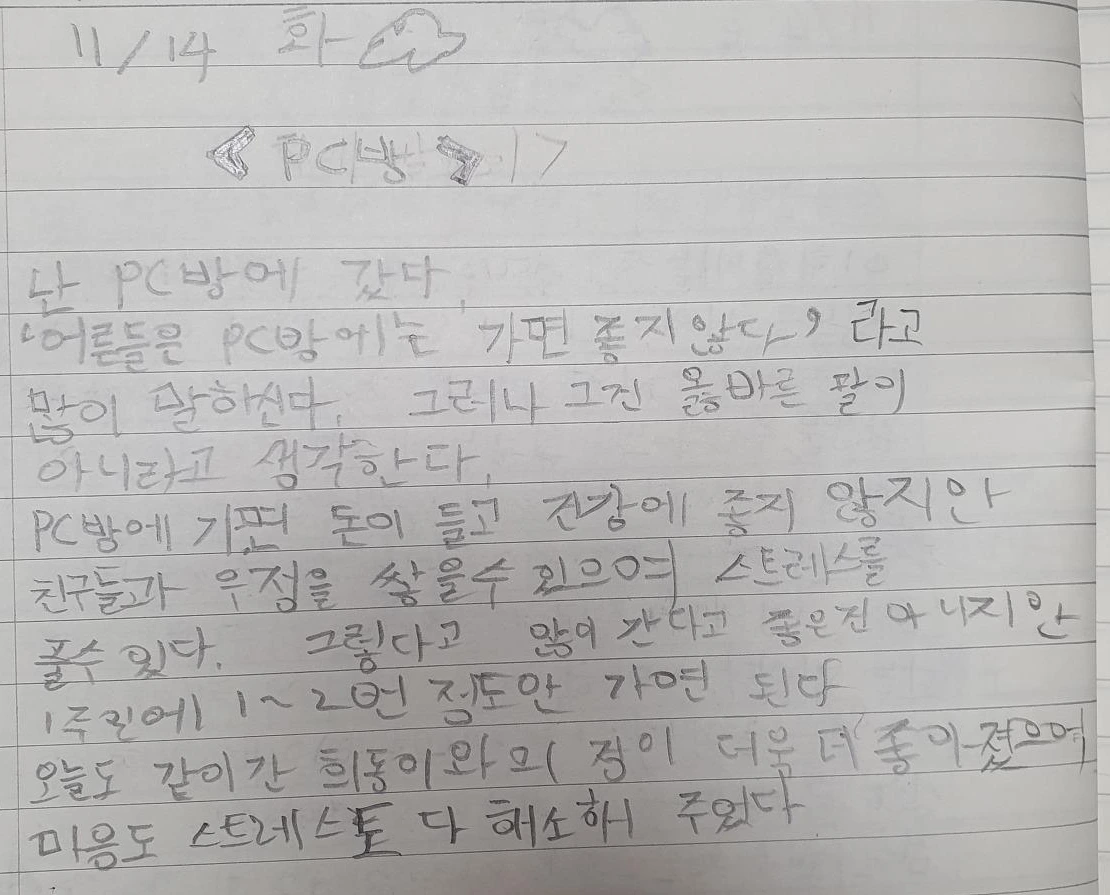 11/14 화
<PC방>
난 PC방에 갔다.
'어른들은 PC방에는 가면 좋지않다' 라고
많이 말하신다. 그러나 그건 옳바른 말이
아니라고 생각한다.
PC방에 가면 돈이 들고 건강에 좋지 않지만
친구들과 우정을 쌓을수 있으며 스트레스를
풀수 있다. 그렇다고 많이 간다고 좋은건 아니지만
1주일에 1~2번 정도만 가면 된다
오늘도 같이간 희동이와의 정이 더욱 더 좋아졌으며
마음도 스트레스도 다 해소해 주었다